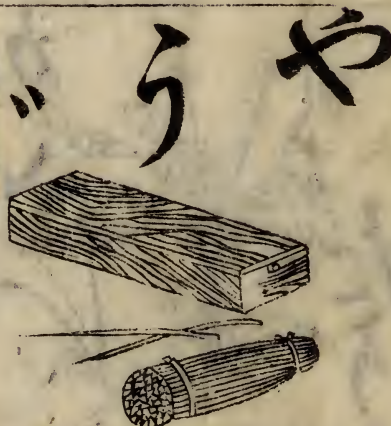 やう゛